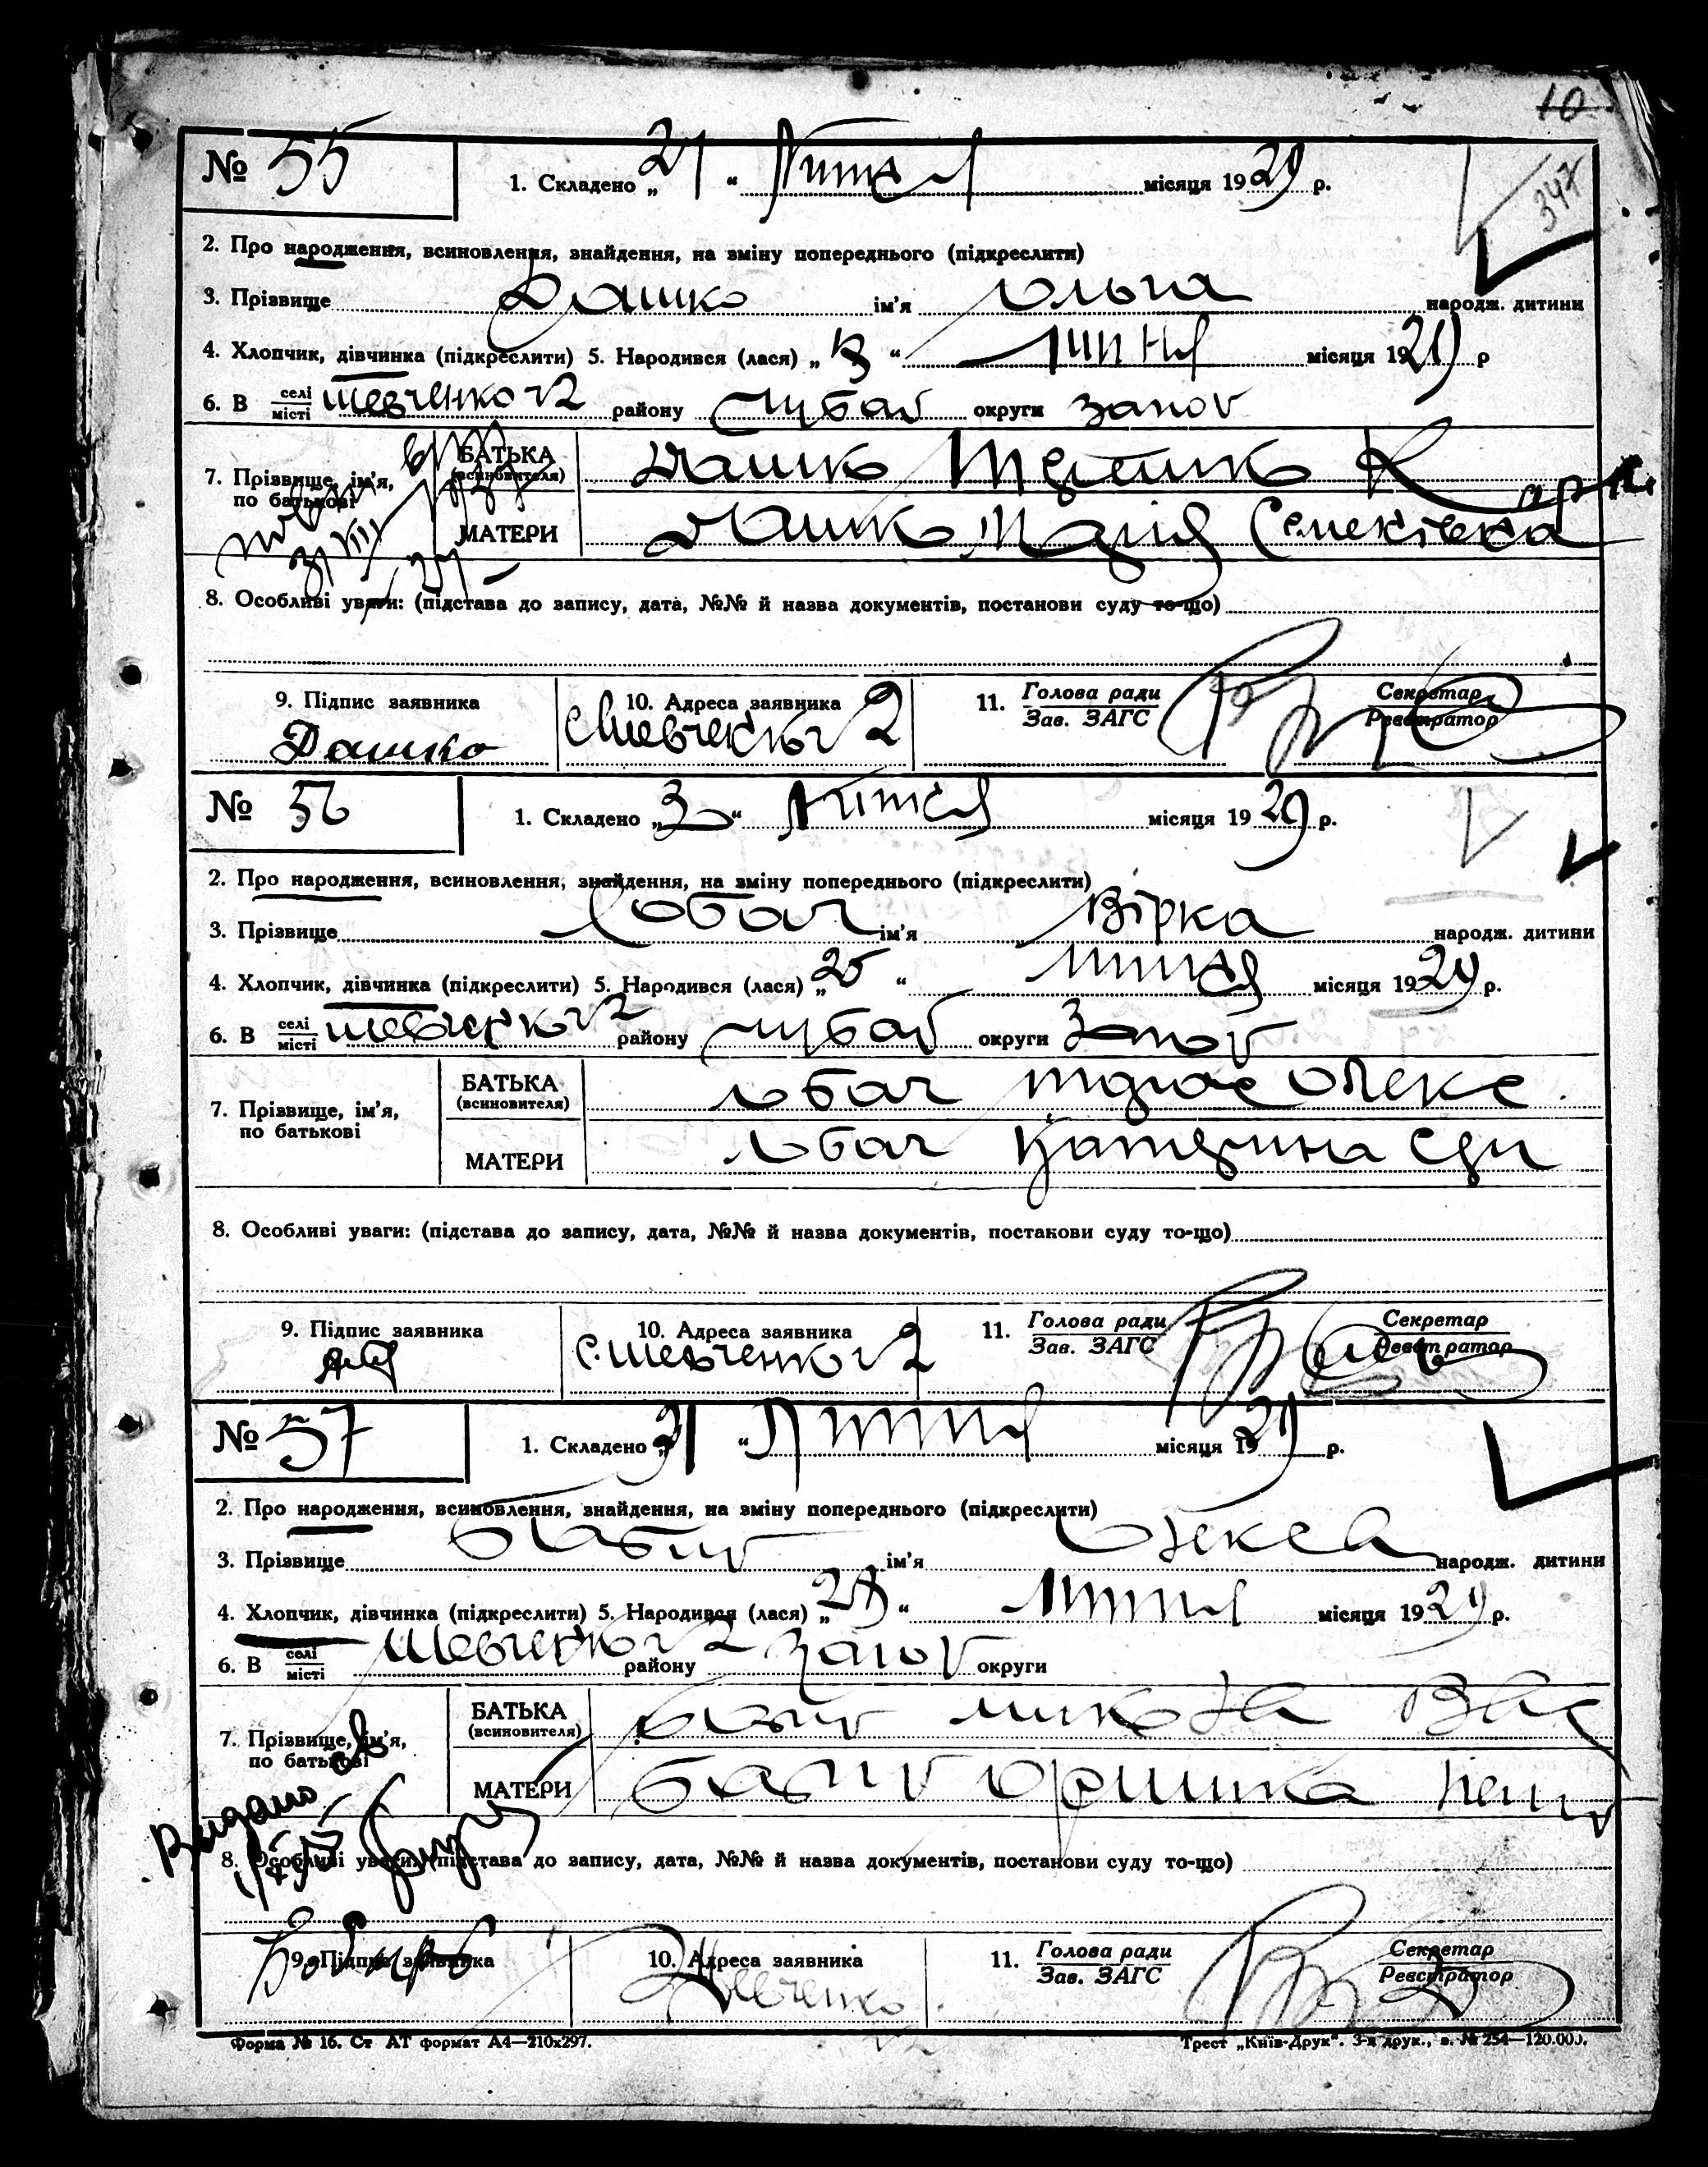 10
№ 55
1. Складено „21“ Липня місяця 1929 р.
347
2. Про народження, всиновлення, знайдення, на зміну попереднього (підкреслити)
3. Прізвище Дашко ім'я Ольга народж. дитини
4. Хлопчик, дівчинка (підкреслити) 5. Народився (лася) „ “ липня місяця 1929 р
6. В селі місті Шевченко №2 району Чубар округи Запор
7. Прізвище, ім'я, по батькові
БАТЬКА (всиновителя) Дашко
МАТЕРИ Дашко Марія Семенівна
8. Особливі уваги: (підстава до запису, дата, №№ й назва документів, постанови суду то-що)
9. Підпис заявника
10. Адреса заявника
11. Голова ради Зав. ЗАГС
Секретар Реєстратор
Дашко
с. Шевченко № 2
№ 56
1. Складено „ “ Липня місяця 1929 р.
2. Про народження, всиновлення, знайдення, на зміну попереднього (підкреслити)
3. Прізвище Лобач ім'я Вірка народж. дитини
4. Хлопчик, дівчинка (підкреслити) 5. Народився (лася) „25“ липня місяця 1929 р.
6. В селі місті Шевченко №2 району Чубар округи Запор
7. Прізвище, ім'я, по батькові
БАТЬКА (всиновителя) Лобач Олекс.
МАТЕРИ Лобач Катерина
8. Особливі уваги: (підстава до запису, дата, №№ й назва документів, постанови суду то-що)
9. Підпис заявника
10. Адреса заявника
11. Голова ради Зав. ЗАГС
Секретар Реєстратор
с. Шевченко № 2
№ 57
1. Складено „31“ Липня місяця 1929 р.
2. Про народження, всиновлення, знайдення, на зміну попереднього (підкреслити)
3. Прізвище ім'я Олекса народж. дитини
4. Хлопчик, дівчинка (підкреслити) 5. Народився (лася) „28“ Липня місяця 1929 р.
6. В селі місті Шевченко № 2 району Запор округи
7. Прізвище, ім'я, по батькові
БАТЬКА (всиновителя) Микола Вас
МАТЕРИ Оришка
Видано
8. Особливі уваги: (підстава до запису, дата, №№ й назва документів, постанови суду то-що)
9. Підпис заявника
10. Адреса заявника
11. Голова ради Зав. ЗАГС
Секретар Реєстратор
Шевченко
Форма № 16. Ст АТ формат А4—210х297.
Трест „Київ-Друк“. 3-я друк., з. № 254—120.000.